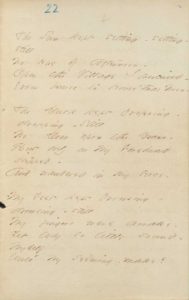 22
The Sun kept setting - setting -
still
No Hue of Afternoon -
Upon the Village I perceived -
From House to House 'twas Noon -
The Dusk kept dropping -
dropping - still
No Dew upon the Grass -
But only on my Forehead
stopped -
And wandered in my Face -
My Feet kept drowsing -
drowsing - still
My fingers were awake -
Yet why so little sound -
Myself
Unto my Seeming - make?